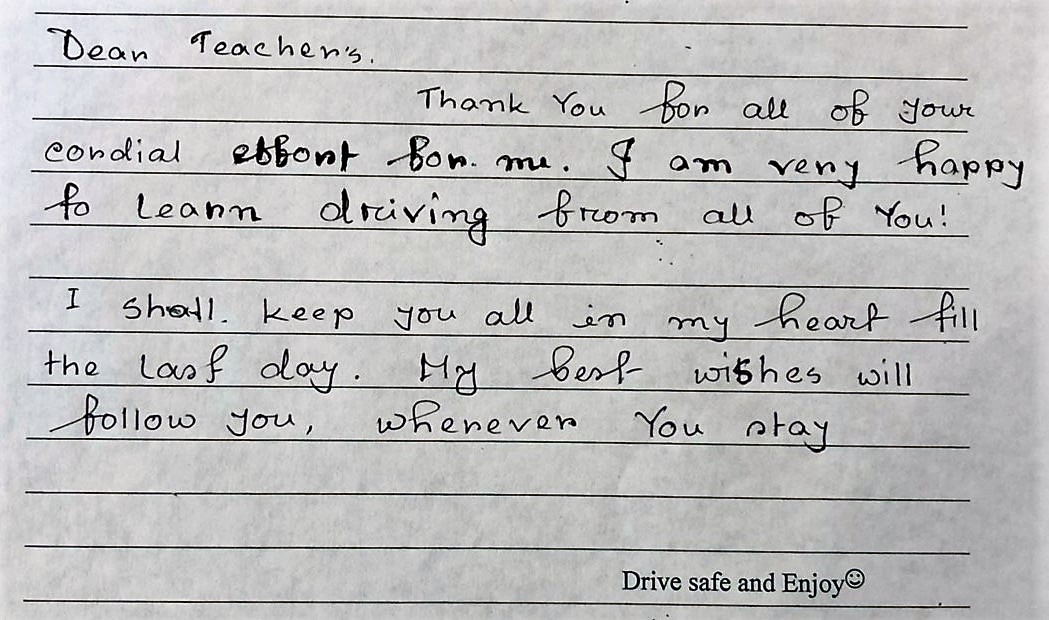 Dear Teacher's.
Thank You for all of your
cordial effort for. me. I am very happy
to Learn driving from all of You!
I shall. keep you all in my heart till
the last day. My best wishes will
follow you, wherever You stay
Drive safe and Enjoy☺